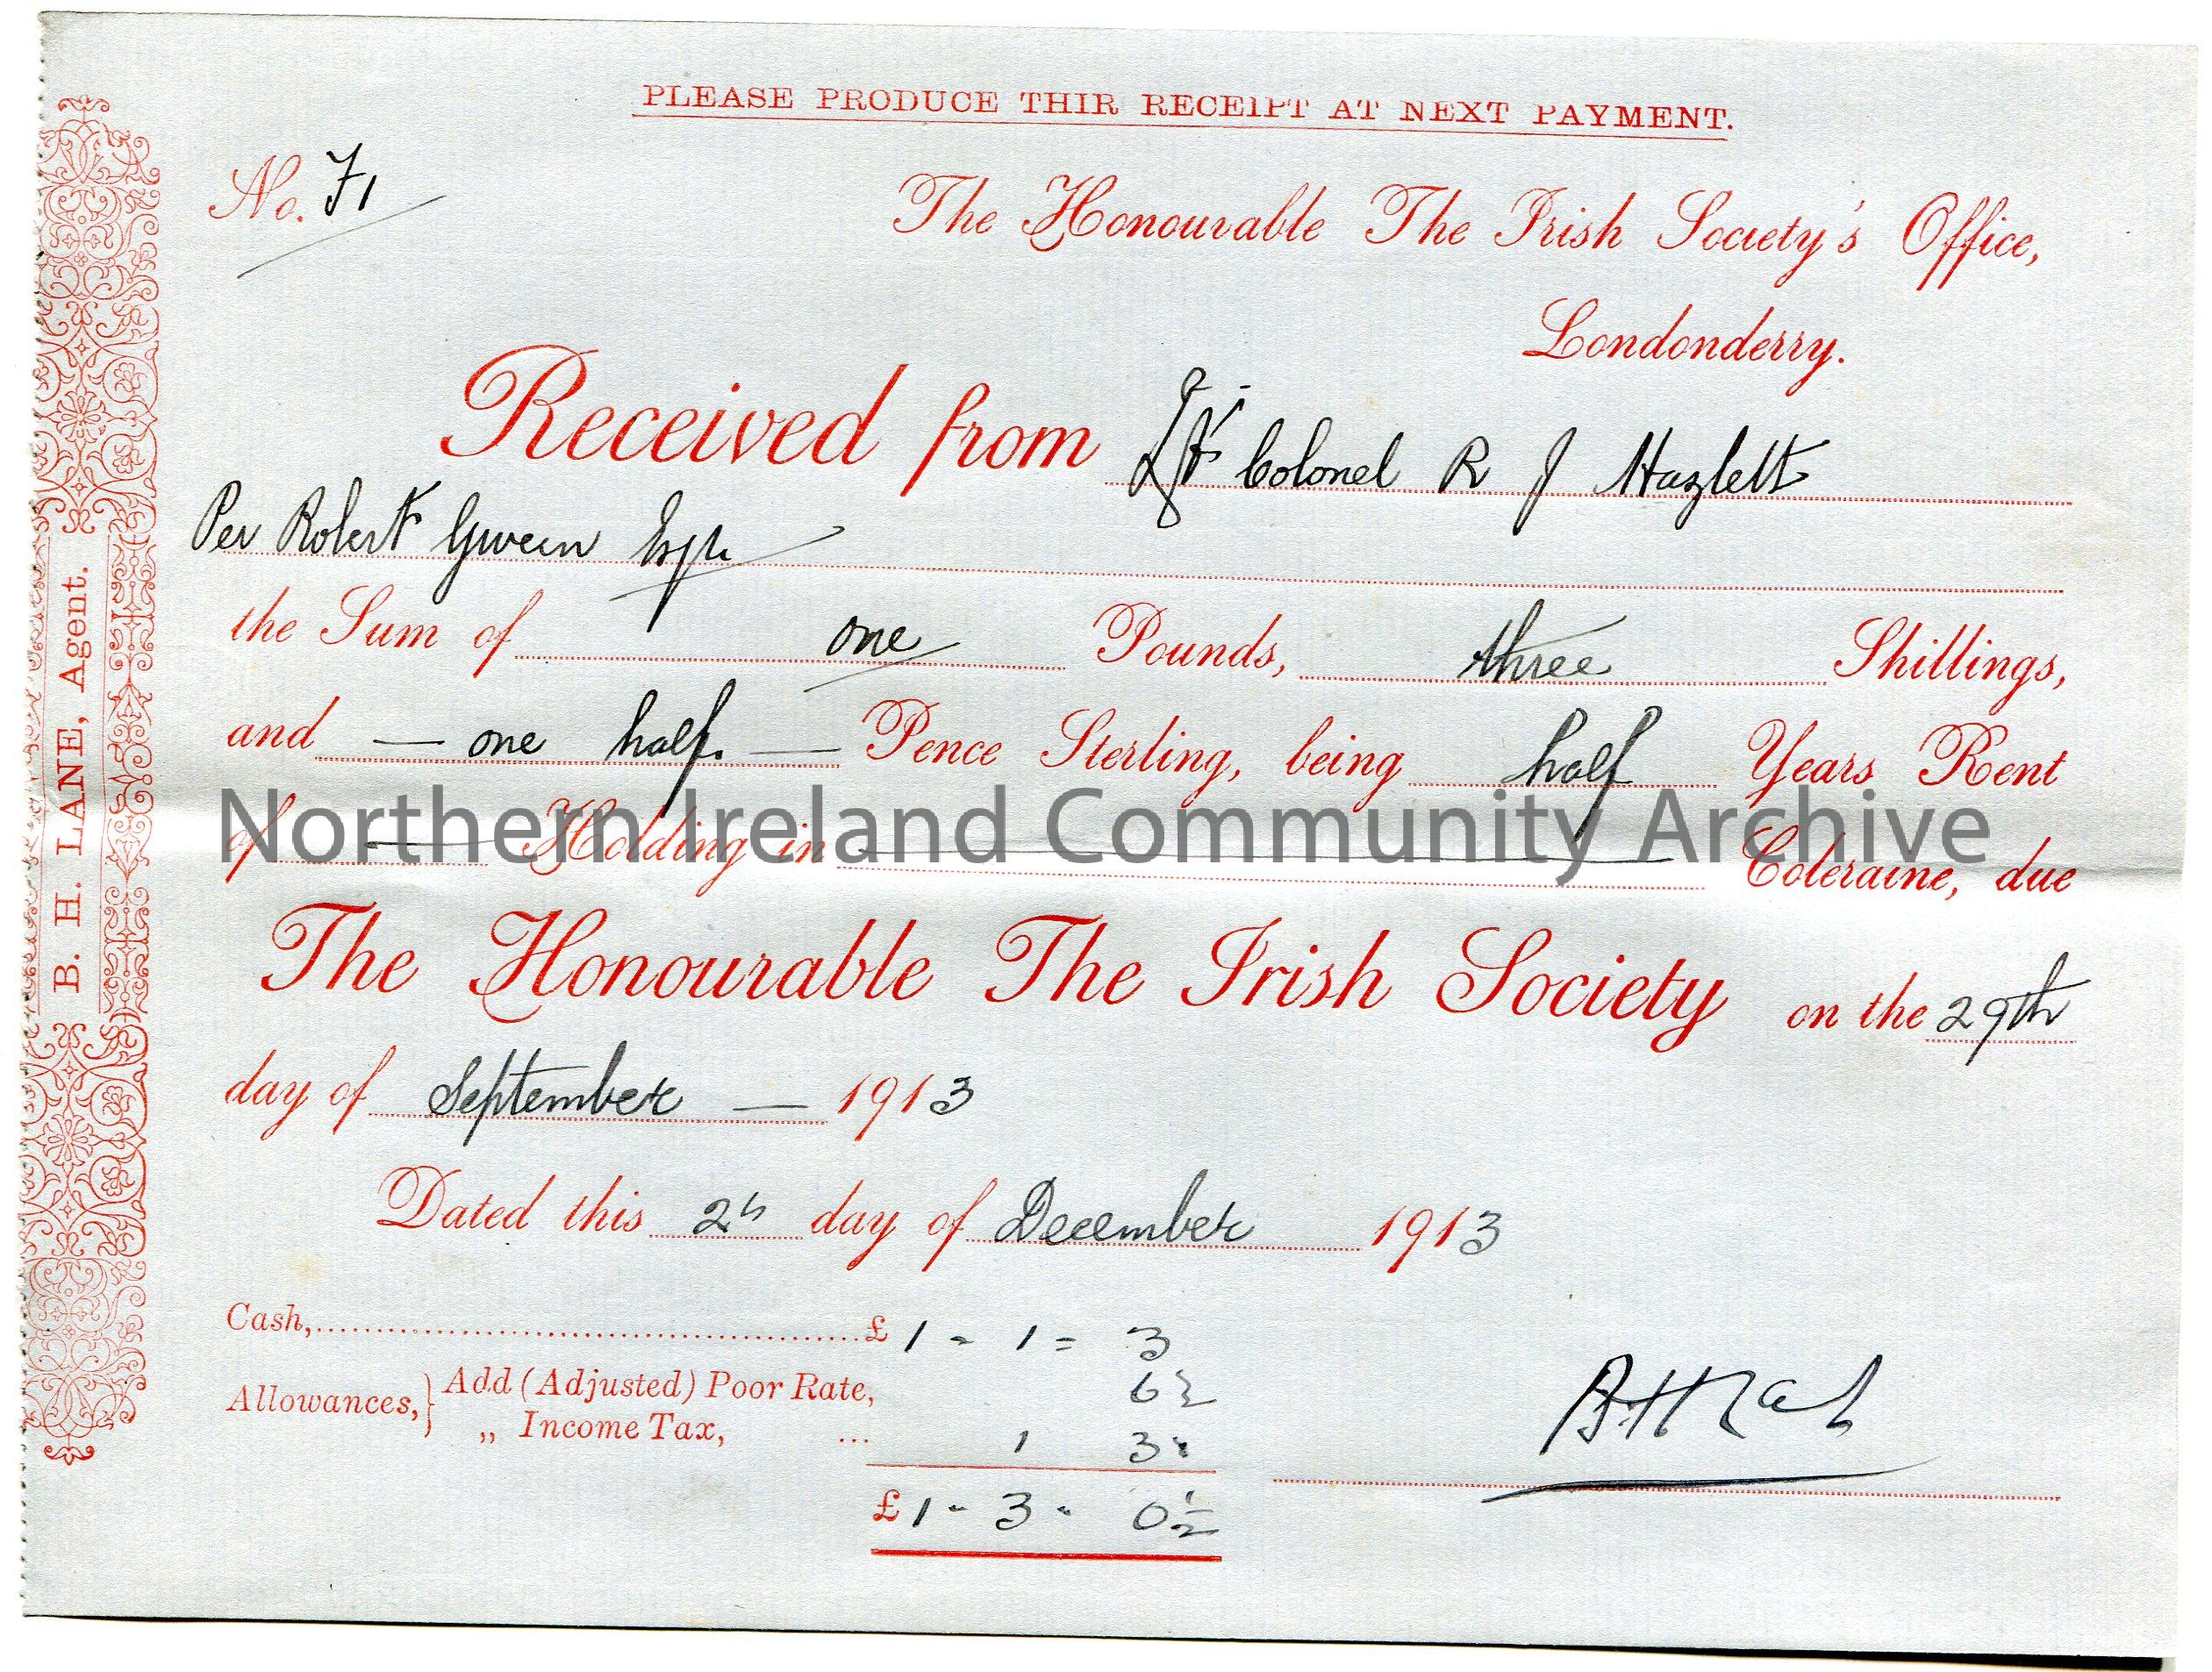 PLEASE PRODUCE THIR RECEIPT AT NEXT PAYMENT.
No. 71
The Honourable The Irish Society's Office,
Londonderry.
Received from Lt Colonel R J Hazlett
Per Robert Gwein Esqr
the Sum of one Pounds, three Shillings,
and — one half. — Pence Sterling, being half Years Rent
of — Holding in — Coleraine, due
The Honourable The Irish Society on the 29th
day of September — 1913
Dated this 2nd day of December 1913
Cash, £ 1 - 1 = 3
Allowances, } Add (Adjusted) Poor Rate, 6½
„ Income Tax, ... 1 3
£ 1 - 3 - 0½
B. H. LANE, Agent.
Northern Ireland Community Archive